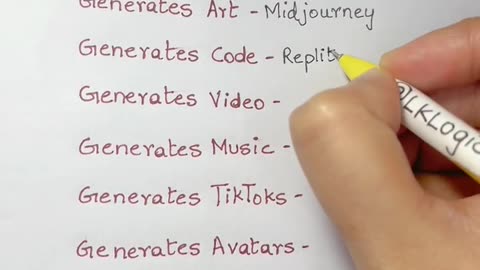 Generates Art - Midjourney
Generates Code - Replit
Generates Video -
Generates Music -
Generates TikToks -
Generates Avatars -
@LKLogic